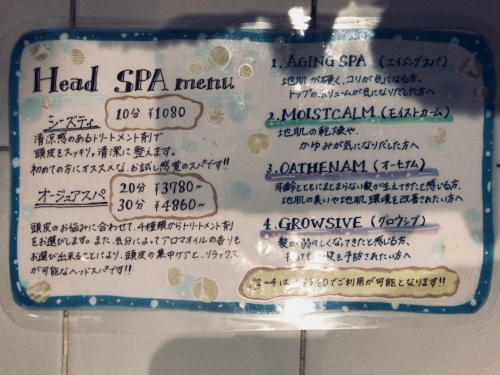 Head SPA menu
シーズディ 10分 ¥1080
清涼感のあるトリートメント剤で
頭皮をスッキリ。清潔に整えます。
初めての方にオススメな、お試し感覚のスパです!!
オージュアスパ 20分 ¥3780~
30分 ¥4860~
頭皮のお悩みに合わせて、4種類からトリートメント剤
をお選びします。また、気分によってアロマオイルの香りも
お選び出来ることにより、頭皮の集中ケアと、リラックス
が可能なヘッドスパです!!
1. AGING SPA (エイジングスパ)
地肌が硬く、コリが気になる方、
トップのボリュームが気になりだした方へ
2. MOISTCALM (モイストカーム)
地肌の乾燥や、
かゆみが気になりだした方へ
3. OATHENAM (オーセナム)
年齢とともにまとまらない髪が生えてきたと感じる方、
地肌の臭いや地肌環境を改善されたい方へ
4. GROWSIVE (グロウシブ)
髪が弱々しくなってきたと感じる方、
を予防されたい方へ
2~4は でご利用が可能となります!!